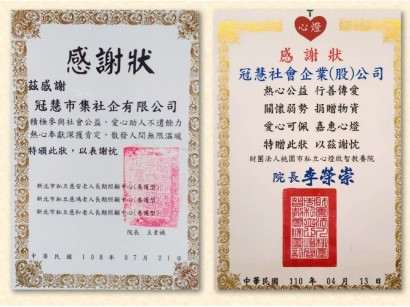 感謝狀
茲感謝
冠慧市集社企有限公司
積極參與社會公益，愛心助人不遺餘力
熱心奉獻深獲肯定，散發人間無限溫暖
特頒此狀，以表謝忱
新北市私立慈安老人長期照顧中心(養護型)
新北市私立慈鴻老人長期照顧中心(養護型)
新北市私立慈和老人長期照顧中心(養護型)
院長
中華民國 108 年 07 月 21 日
心燈
感謝狀
冠慧社會企業(股)公司
熱心公益 行善傳愛
關懷弱勢 捐贈物資
愛心可佩 嘉惠心燈
特贈此狀 以茲謝忱
財團法人桃園市私立心燈啟智教養院
院長 李榮崇
中華民國 110 年 04 月 13 日